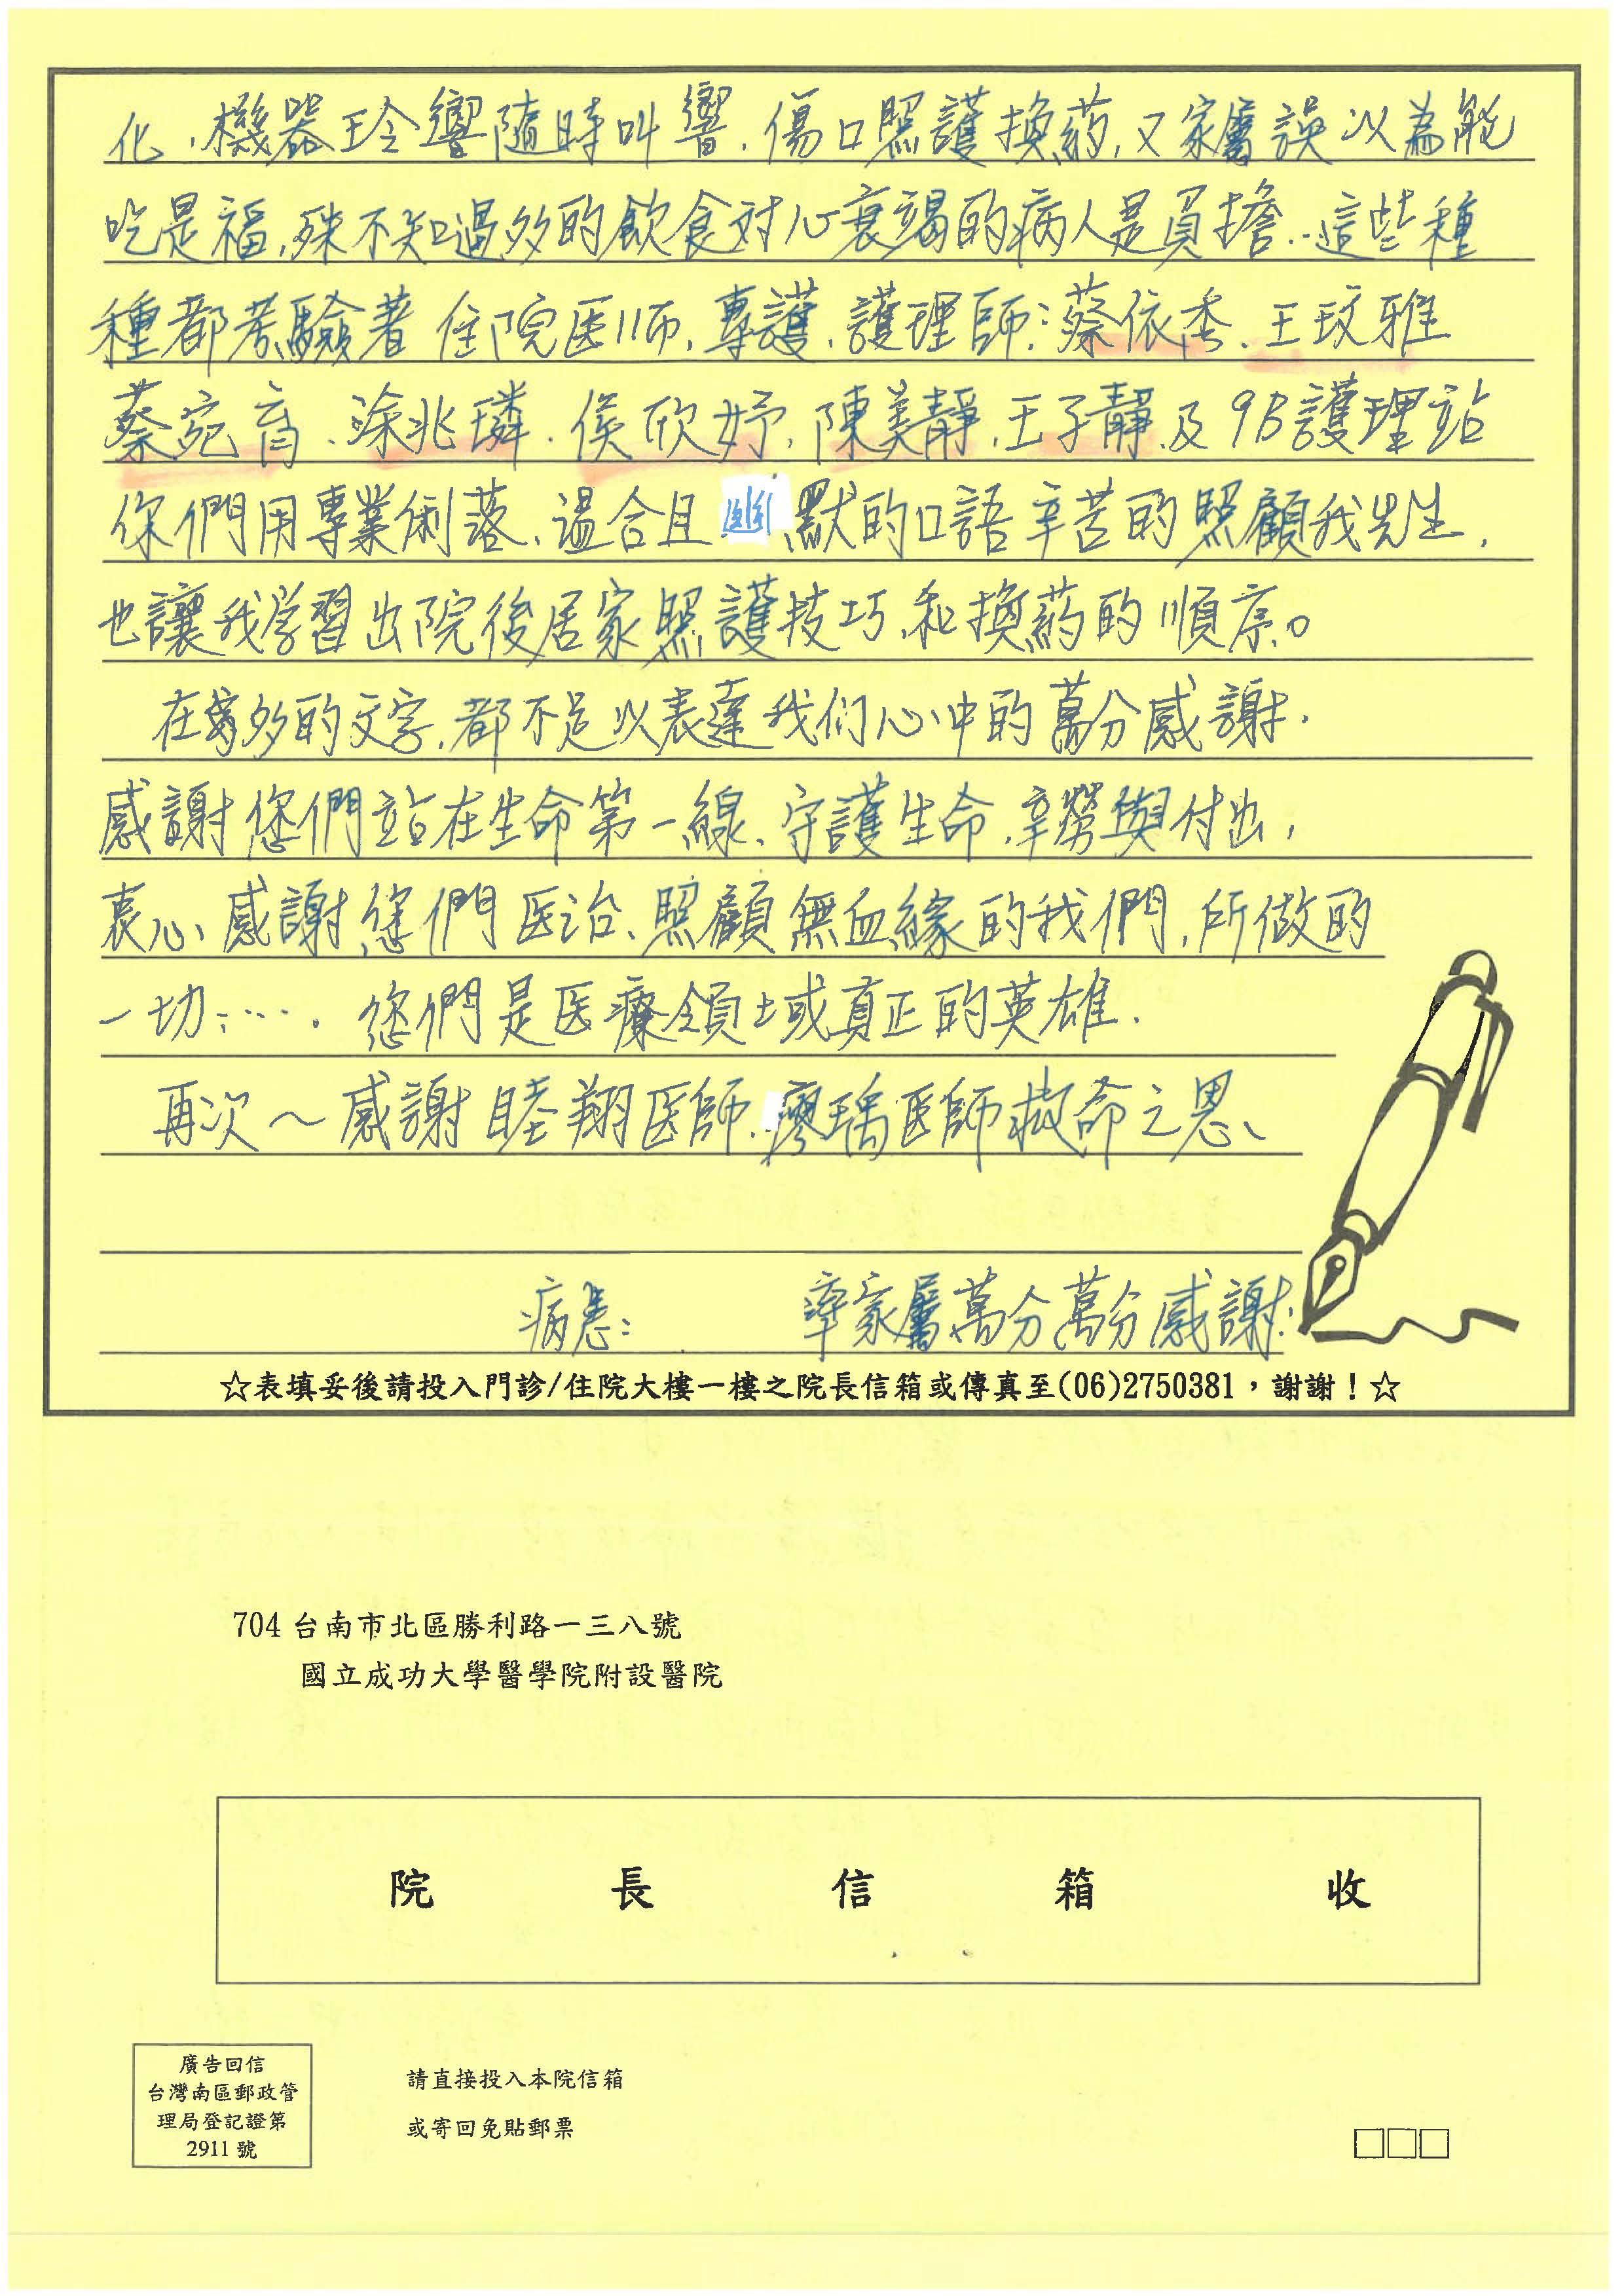 化，機器玲響隨時叫響，傷口照護換葯，又家屬誤以為能
吃是福，殊不知過多的飲食对心衰竭的病人是負擔…這些種
種都考驗著 住院医师、專護、護理師：蔡依香、王玟雅
蔡宛育、涂兆璘、侯欣妤、陳美靜、王子靜及9B護理站
你們用專業俐落、溫合且幽默的口語辛苦的照顧我先生，
也讓我学習出院後居家照護技巧、和換葯的順序。
在多的文字，都不足以表達我们心中的萬分感謝．
感謝您們站在生命第一線、守護生命，辛勞與付出，
衷心感謝您們医治、照顧無血緣的我們，所做的
一切……．您們是医療領域真正的英雄．
再次～感謝睦翔医師、廖瑀医師救命之恩、
病患： 率家屬萬分萬分感謝．
☆表填妥後請投入門診/住院大樓一樓之院長信箱或傳真至(06)2750381，謝謝！☆
704 台南市北區勝利路一三八號
國立成功大學醫學院附設醫院
院 長 信 箱 收
廣告回信
台灣南區郵政管
理局登記證第
2911 號
請直接投入本院信箱
或寄回免貼郵票